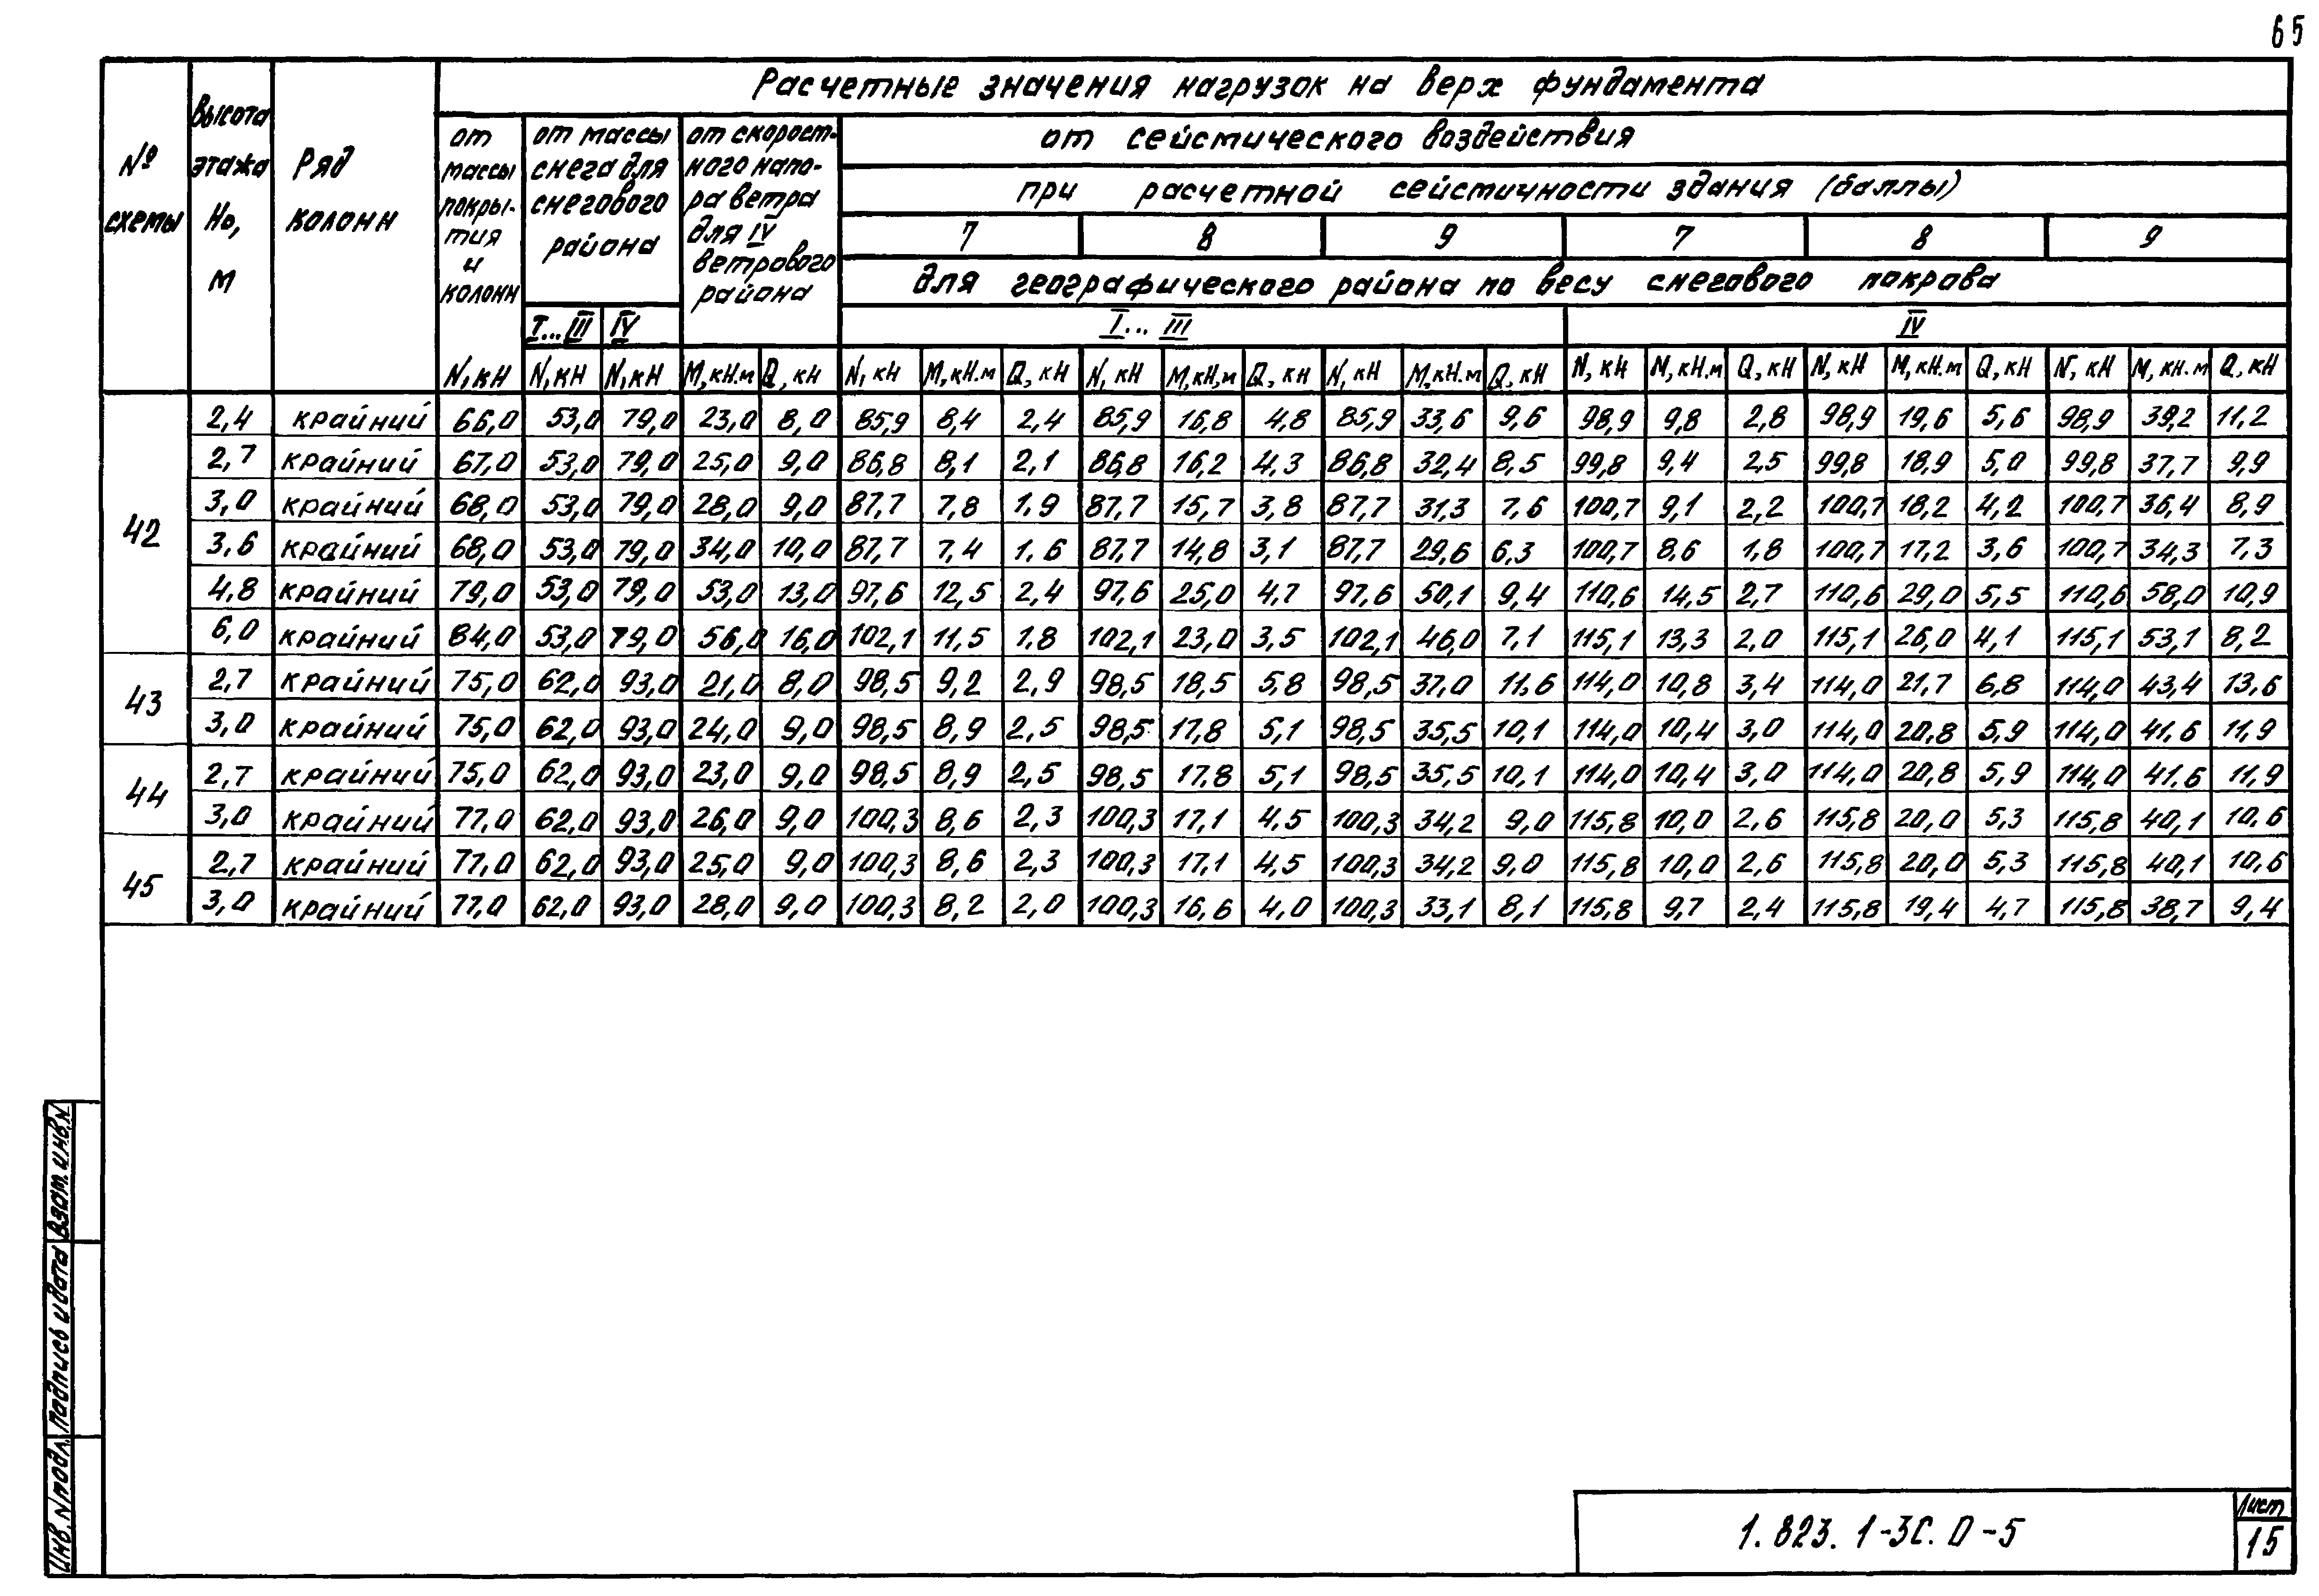 65
Расчетные значения нагрузок на верх фундамента
№ схемы
Высота этажа Но, м
Ряд колонн
от массы покры-тия и колонн
от массы снега для снегового района
от скорост-ного напо-ра ветра для IV ветрового района
от сейсмического воздействия
при расчетной сейсмичности здания (баллы)
7 8 9 7 8 9
для географического района по весу снегового покрова
I...III IV I...III IV
N,кН N,кН N,кН M,кН.м Q,кН N,кН M,кН.м Q,кН N,кН M,кН.м Q,кН N,кН M,кН.м Q,кН N,кН M,кН.м Q,кН N,кН M,кН.м Q,кН N,кН M,кН.м Q,кН
42
2,4 крайний 66,0 53,0 79,0 23,0 8,0 85,9 8,4 2,4 85,9 16,8 4,8 85,9 33,6 9,6 98,9 9,8 2,8 98,9 19,6 5,6 98,9 39,2 11,2
2,7 крайний 67,0 53,0 79,0 25,0 9,0 86,8 8,1 2,1 86,8 16,2 4,3 86,8 32,4 8,5 99,8 9,4 2,5 99,8 18,9 5,0 99,8 37,7 9,9
3,0 крайний 68,0 53,0 79,0 28,0 9,0 87,7 7,8 1,9 87,7 15,7 3,8 87,7 31,3 7,6 100,7 9,1 2,2 100,7 18,2 4,2 100,7 36,4 8,9
3,6 крайний 68,0 53,0 79,0 34,0 10,0 87,7 7,4 1,6 87,7 14,8 3,1 87,7 29,6 6,3 100,7 8,6 1,8 100,7 17,2 3,6 100,7 34,3 7,3
4,8 крайний 79,0 53,0 79,0 53,0 13,0 97,6 12,5 2,4 97,6 25,0 4,7 97,6 50,1 9,4 110,6 14,5 2,7 110,6 29,0 5,5 110,6 58,0 10,9
6,0 крайний 84,0 53,0 79,0 56,0 16,0 102,1 11,5 1,8 102,1 23,0 3,5 102,1 46,0 7,1 115,1 13,3 2,0 115,1 26,0 4,1 115,1 53,1 8,2
43
2,7 крайний 75,0 62,0 93,0 21,0 8,0 98,5 9,2 2,9 98,5 18,5 5,8 98,5 37,0 11,6 114,0 10,8 3,4 114,0 21,7 6,8 114,0 43,4 13,6
3,0 крайний 75,0 62,0 93,0 24,0 9,0 98,5 8,9 2,5 98,5 17,8 5,1 98,5 35,5 10,1 114,0 10,4 3,0 114,0 20,8 5,9 114,0 41,6 11,9
44
2,7 крайний 75,0 62,0 93,0 23,0 9,0 98,5 8,9 2,5 98,5 17,8 5,1 98,5 35,5 10,1 114,0 10,4 3,0 114,0 20,8 5,9 114,0 41,6 11,9
3,0 крайний 77,0 62,0 93,0 26,0 9,0 100,3 8,6 2,3 100,3 17,1 4,5 100,3 34,2 9,0 115,8 10,0 2,6 115,8 20,0 5,3 115,8 40,1 10,6
45
2,7 крайний 77,0 62,0 93,0 25,0 9,0 100,3 8,6 2,3 100,3 17,1 4,5 100,3 34,2 9,0 115,8 10,0 2,6 115,8 20,0 5,3 115,8 40,1 10,6
3,0 крайний 77,0 62,0 93,0 28,0 9,0 100,3 8,2 2,0 100,3 16,6 4,0 100,3 33,1 8,1 115,8 9,7 2,4 115,8 19,4 4,7 115,8 38,7 9,4
Взам. инв.N
Подпись и дата
Инв. N подл.
1.823.1-3С.0-5
Лист
15